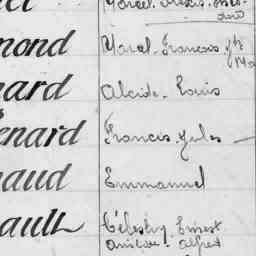 mond
Marcel François
nard
Alcide Louis
énard
Francis Jules
naud
Emmanuel
ault
Célestin Ernest
Alfred